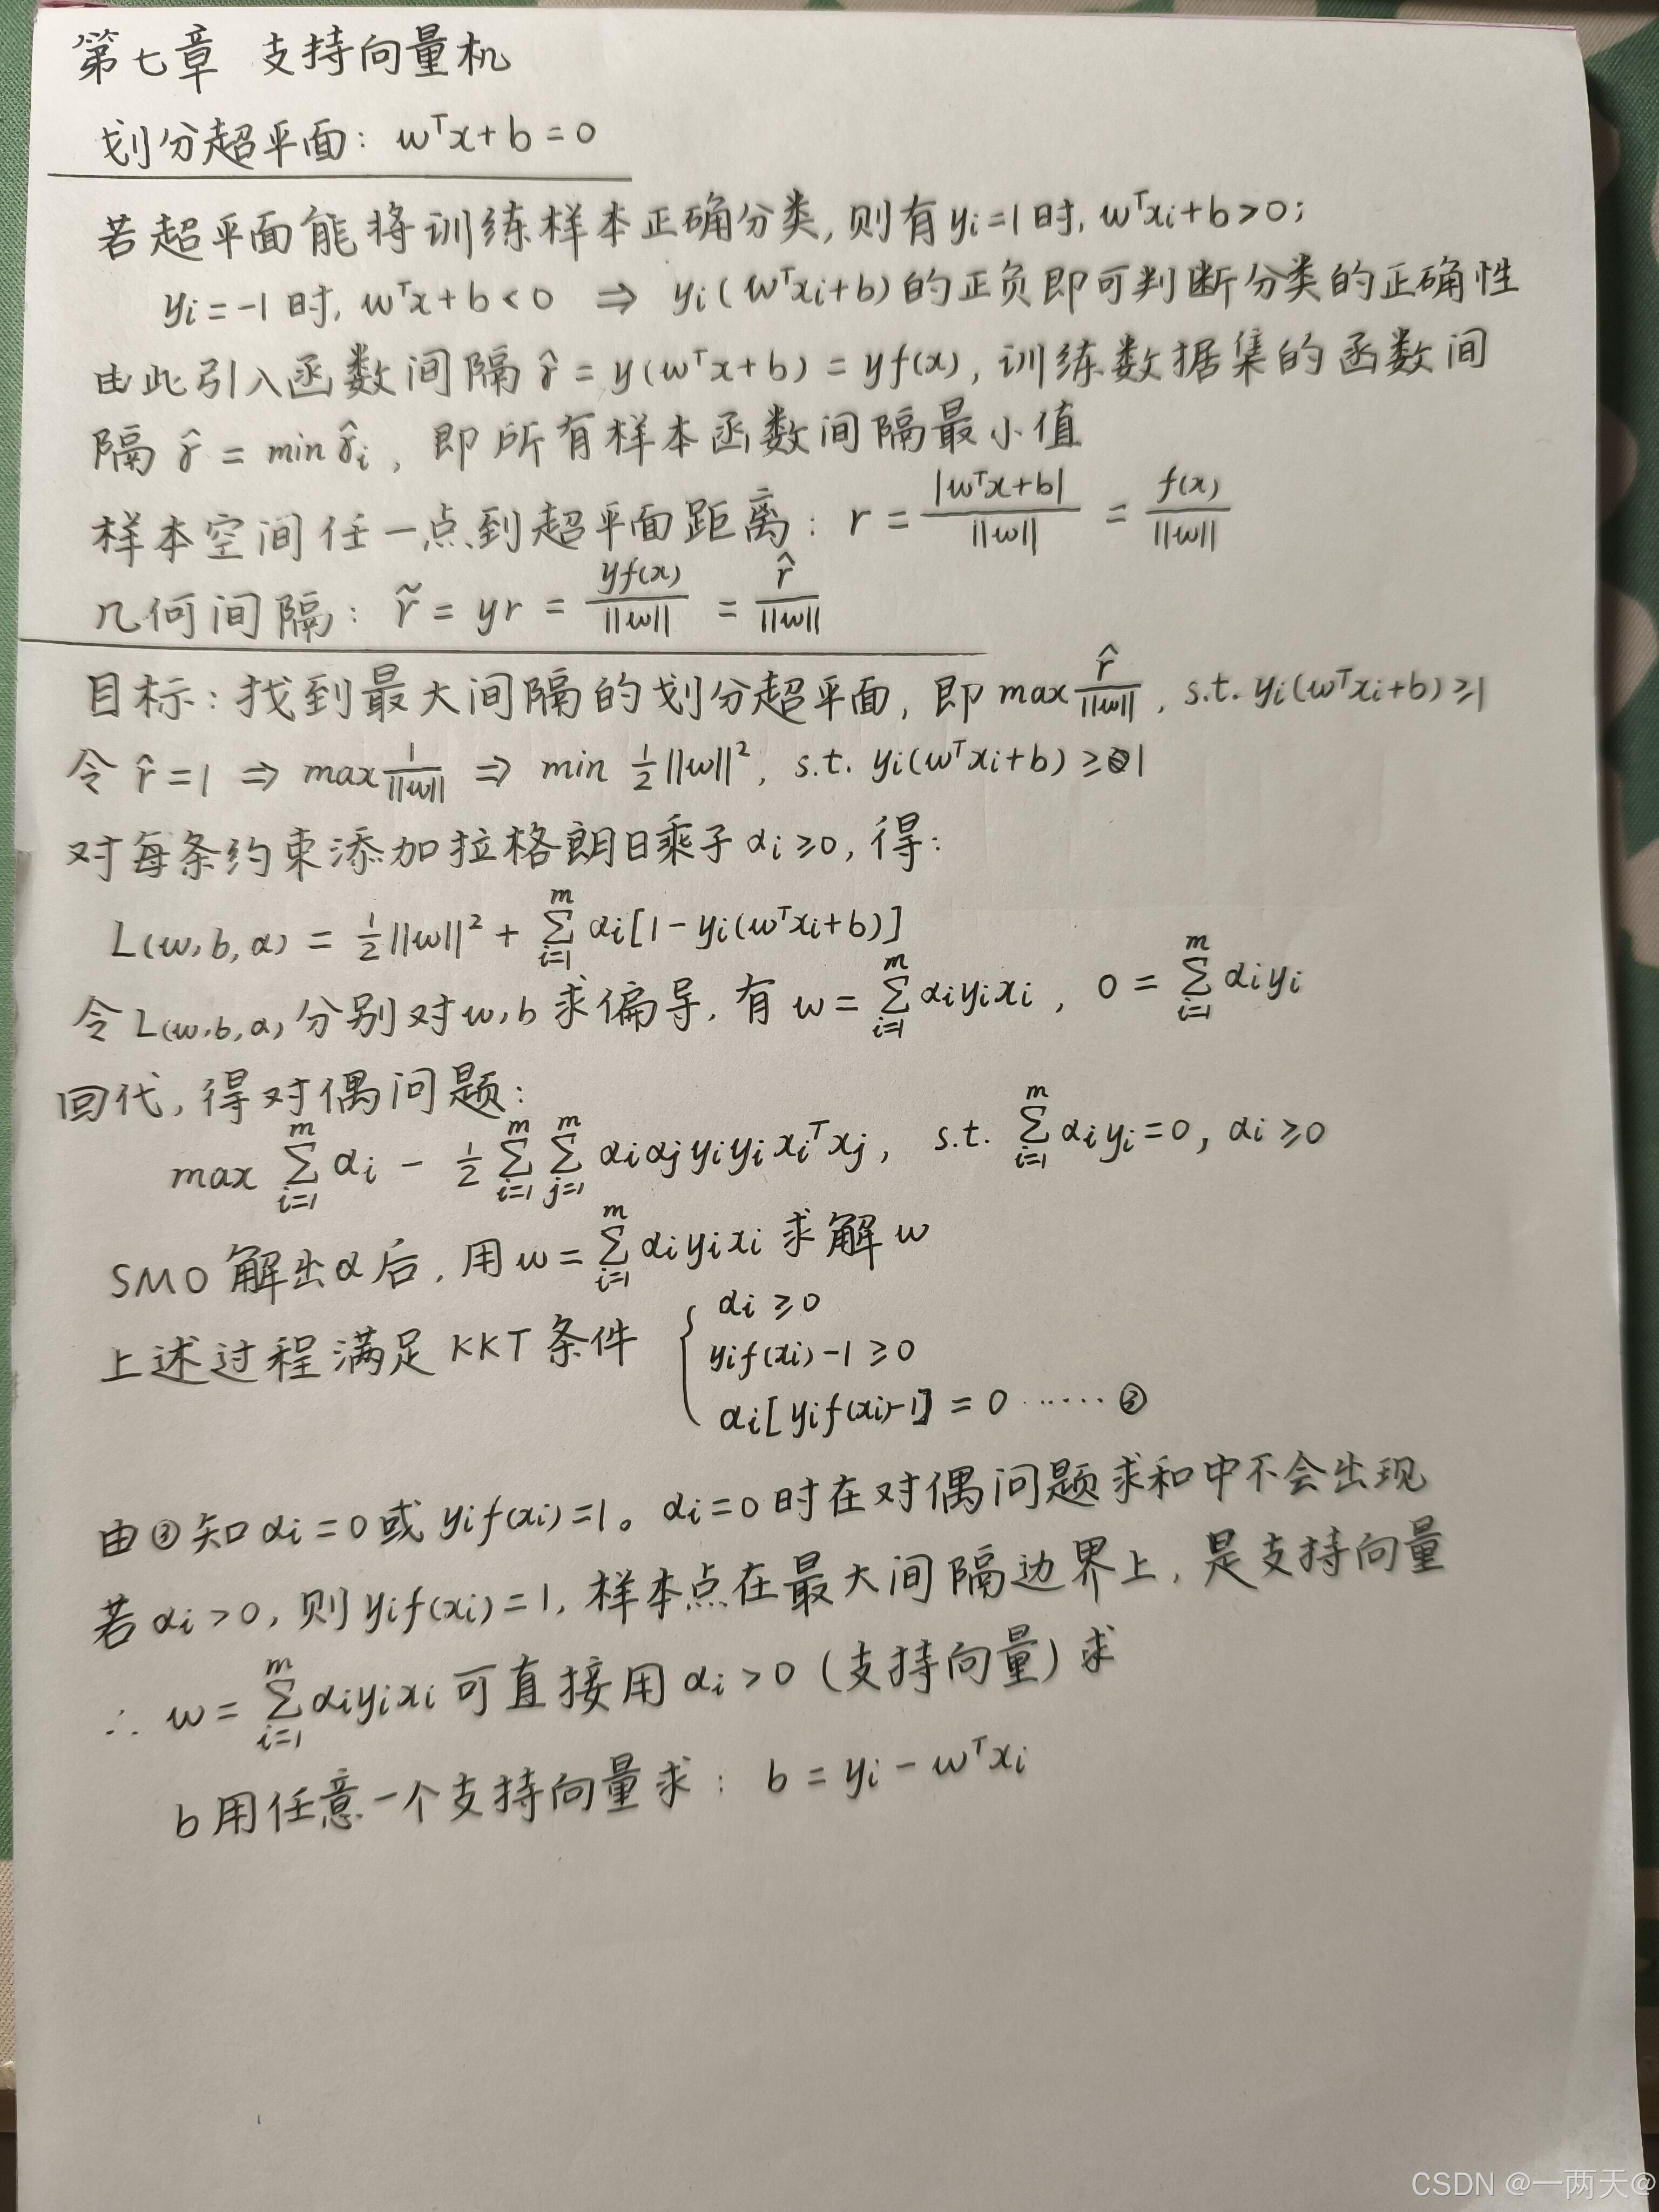 第七章 支持向量机
划分超平面: wᵀx+b=0
若超平面能将训练样本正确分类, 则有 yi=1时, wᵀxi+b>0;
yi=-1时, wᵀx+b<0 ⇒ yi(wᵀxi+b)的正负即可判断分类的正确性
由此引入函数间隔 r̂ = y(wᵀx+b) = yf(x), 训练数据集的函数间
隔 r̂ = min r̂i, 即所有样本函数间隔最小值
样本空间任一点到超平面距离: r = |wᵀx+b| / ||w|| = f(x) / ||w||
几何间隔: r̃ = yr = yf(x) / ||w|| = r̂ / ||w||
目标: 找到最大间隔的划分超平面, 即 max r̂ / ||w||, s.t. yi(wᵀxi+b)≥1
令 r̂=1 ⇒ max 1/||w|| ⇒ min ½||w||², s.t. yi(wᵀxi+b)≥1
对每条约束添加拉格朗日乘子 αi≥0, 得:
L(w,b,α) = ½||w||² + ∑_{i=1}^{m} αi[1-yi(wᵀxi+b)]
令 L(w,b,α) 分别对 w,b 求偏导, 有 w = ∑_{i=1}^{m} αiyixi, 0 = ∑_{i=1}^{m} αiyi
回代, 得对偶问题:
max ∑_{i=1}^{m} αi - ½ ∑_{i=1}^{m} ∑_{j=1}^{m} αiαjyiyixiᵀxj, s.t. ∑_{i=1}^{m} αiyi=0, αi≥0
SMO 解出α后, 用 w = ∑_{i=1}^{m} αiyixi 求解 w
上述过程满足 KKT 条件 {
αi≥0
yif(xi)-1≥0
αi[yif(xi)-1] = 0 ······ ③
由③知 αi=0或 yif(xi)=1。αi=0时在对偶问题求和中不会出现
若 αi>0, 则 yif(xi)=1, 样本点在最大间隔边界上, 是支持向量
∴ w = ∑_{i=1}^{m} αiyixi 可直接用 αi>0 (支持向量) 求
b用任意一个支持向量求: b = yi - wᵀxi
CSDN @一两天@